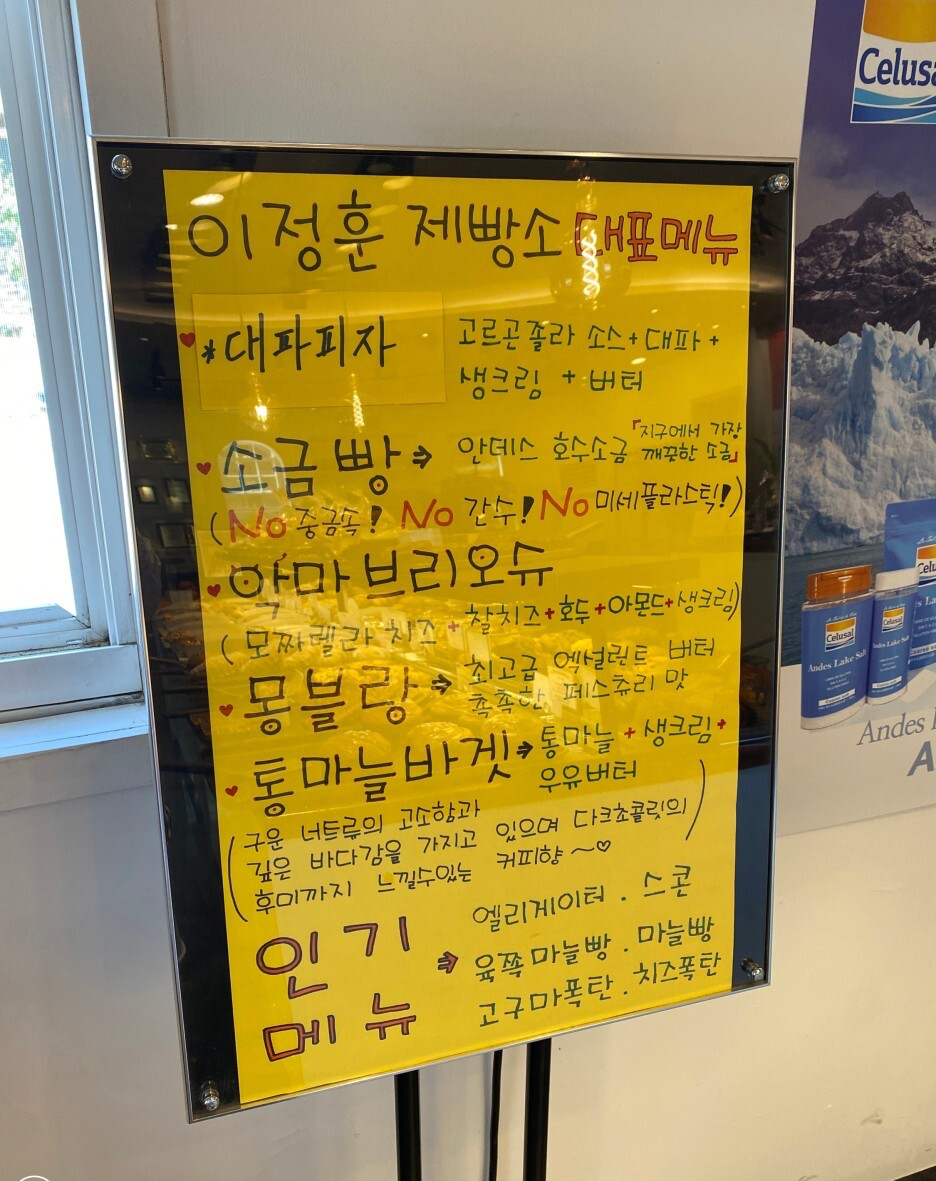 이정훈 제빵소 대표메뉴
♥ *대파피자
고르곤졸라 소스+대파+
생크림 + 버터
♥ 소금빵 ⇒ 안데스 호수소금
「지구에서 가장
깨끗한 소금」
(No 중금속! No 간수! No 미세플라스틱!)
♥ 악마브리오슈
(모짜렐라 치즈+찰치즈+호두+아몬드+생크림)
♥ 몽블랑 ⇒ 최고급 엑설런트 버터
촉촉한 페스츄리 맛
♥ 통마늘바겟 ⇒ 통마늘+생크림+
우유버터
(구운 너트류의 고소함과
깊은 바디감을 가지고 있으며 다크초콜릿의
후미까지 느낄수있는 커피향~♡)
인기
메뉴
⇒ 엘리게이터. 스콘
육쪽마늘빵. 마늘빵
고구마폭탄. 치즈폭탄
Celusal
Celusal
Andes Lake Salt
Celusal
Andes